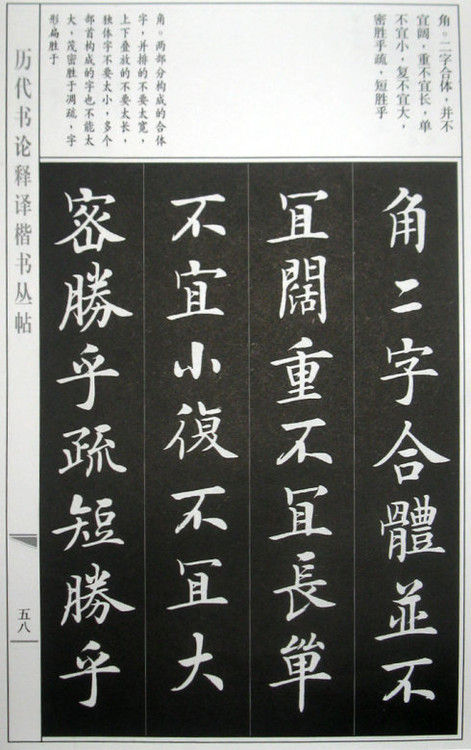 角。二字合体，并不
宜阔，重不宜长，单
不宜小，复不宜大，
密胜乎疏，短胜乎
角。两部分构成的合体
字，并排的不要太宽，
上下叠放的不要太长，
独体字不要太小，多个
部首构成的字也不能太
大，茂密胜于凋疏，字
形扁胜于
角二字合體並不
冝闊重不冝長單
不宜小復不冝大
密勝乎疏短勝乎
历代书论释译楷书丛帖
五八